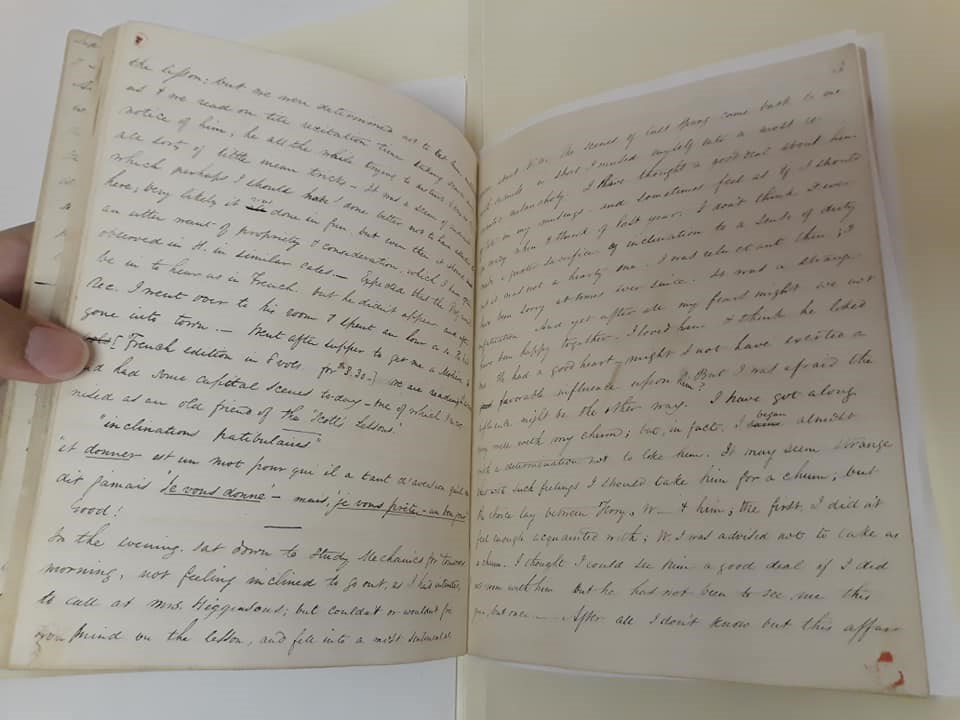 the lesson; but we were determined not to let him
us & we read on the recitation time taking some
notice of him; he all the while trying to
all sorts of little mean tricks — It was a scene of
which perhaps I should have done better not to have
here; very likely it was done in fun, but even then it shows
an utter want of propriety & consideration, which I have often
observed in H. in similar cases. — Expected that the
be in to hear us in French. but he didn't appear and after
Rec. I went over to his room & spent an hour
gone into town. — Went after supper to get me a
[French edition in 8 vols. for $3.30.] we are reading
and had some capital scenes today — one of which
nised as an old friend of the "Scott's Lessons".
"inclinations patibulaires"
"et donner est un mot pour qui il a tant d'aversion qu'il ne
dit jamais 'Je vous donne' — mais, 'je vous prête — un bon jour'
Good!
In the evening, sat down to study Mechanics for tomorrow
morning, not feeling inclined to go out, as I had intended,
to call at Mrs. Higginson's; but couldn't or wouldn't fix
my mind on the lesson, and fell into a most sentimental
about The scenes of last Spring came back to me
in short I mused myself into a most
melancholy. I have thought a good deal about him
of late in my musings and sometimes feel as if I should
when I think of last year. I don't think I ever
made a greater sacrifice of inclination to a sense of duty
but it was not a hearty one. I was reluctant then; &
have been sorry at times ever since. It was a strange
infatuation. And yet after all my fears might we not
have been happy together. I loved him & think he liked
me. He had a good heart; might I not have exerted a
favorable influence upon him? But I was afraid the
influence might be the other way. I have got along
very well with my chum; but, in fact, I began almost
with a determination not to like him. It may seem strange
that with such feelings I should take him for a chum; but
the choice lay between Thory, W— & him; the first, I did n't
feel enough acquainted with; W. I was advised not to take as
a chum. I thought I could see him a good deal if I did
not room with him But he has not been to see me this
year, but once — After all I don't know but this affair